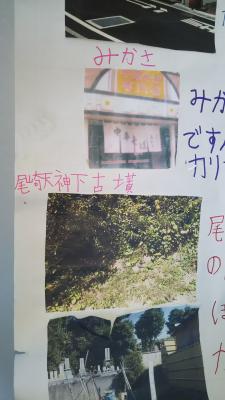 みかさ
みか
ですん
カリ
尾奇天神下古墳
尾
の
ほ